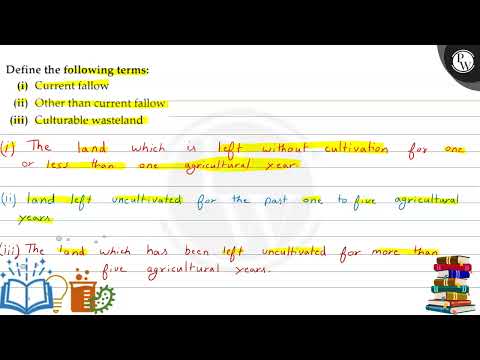 Define the following terms:
(i) Current fallow
(ii) Other than current fallow
(iii) Culturable wasteland
(i) The land which is left without cultivation for one
or less than one agricultural year.
(ii) land left uncultivated for the past one to five agricultural
years
(iii) The land which has been left uncultivated for more than
five agricultural years.